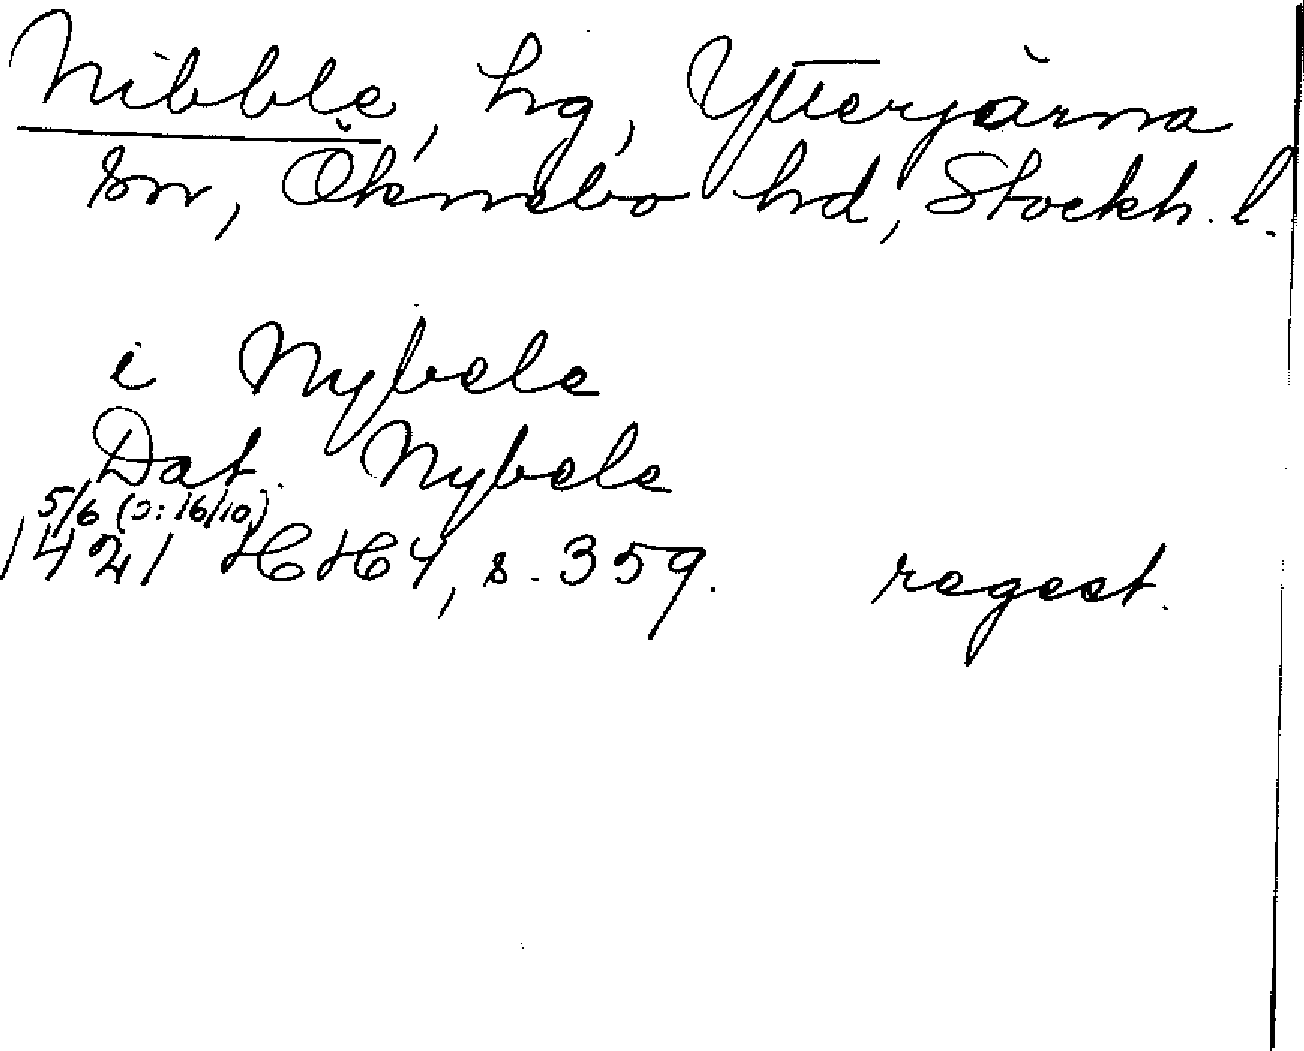 Nibble, hg, Ytterjärna
sn, Öknebo hd, Stockh. l.
i Nybele
Dat. Nybele
5/6 (ɔ: 16/10)
1421 HH 4, s. 359. regest.